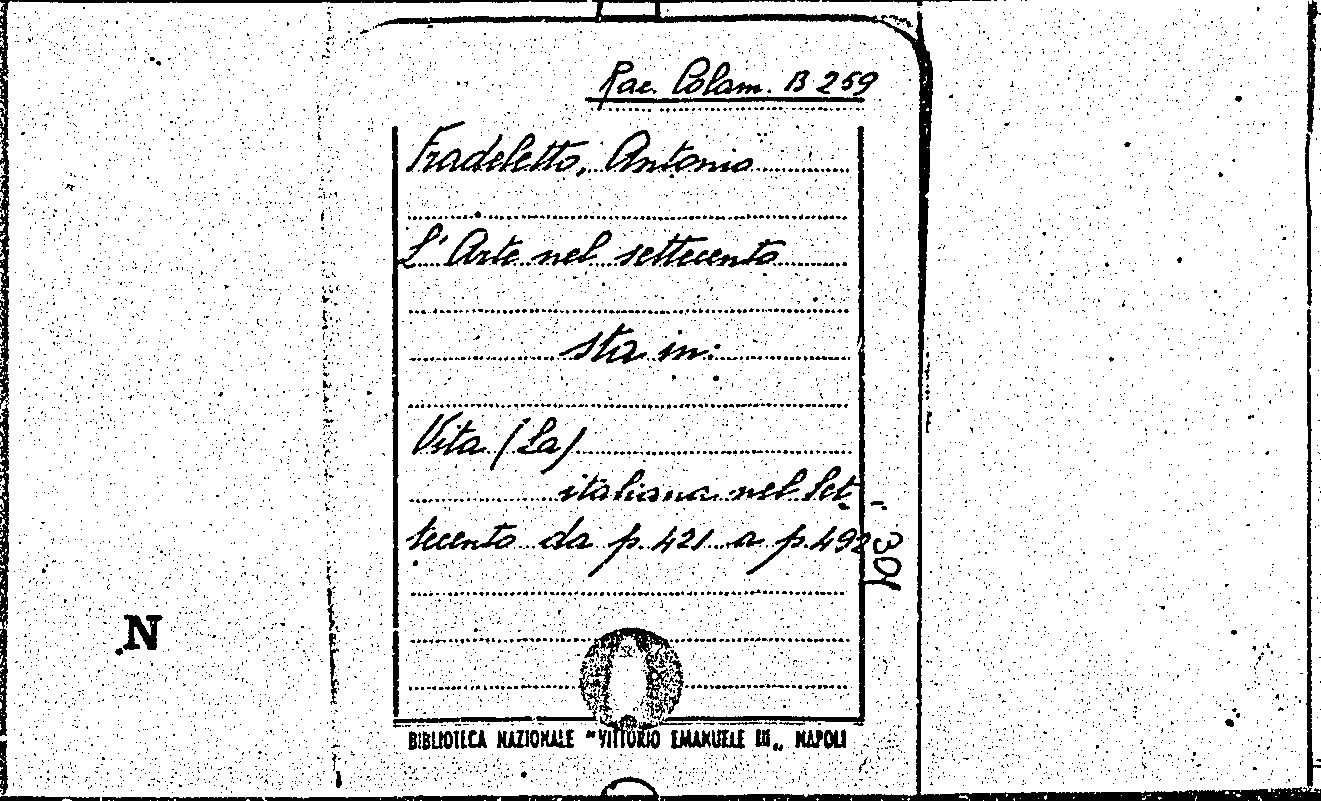 Rac. Colam. B 259
Fradeletto, Antonio
L'Arte nel settecento
sta in:
Vita (La)
italiana nel Set-
tecento da p. 421 a p. 492
301
N
BIBLIOTECA NAZIONALE "VITTORIO EMANUELE III„ NAPOLI